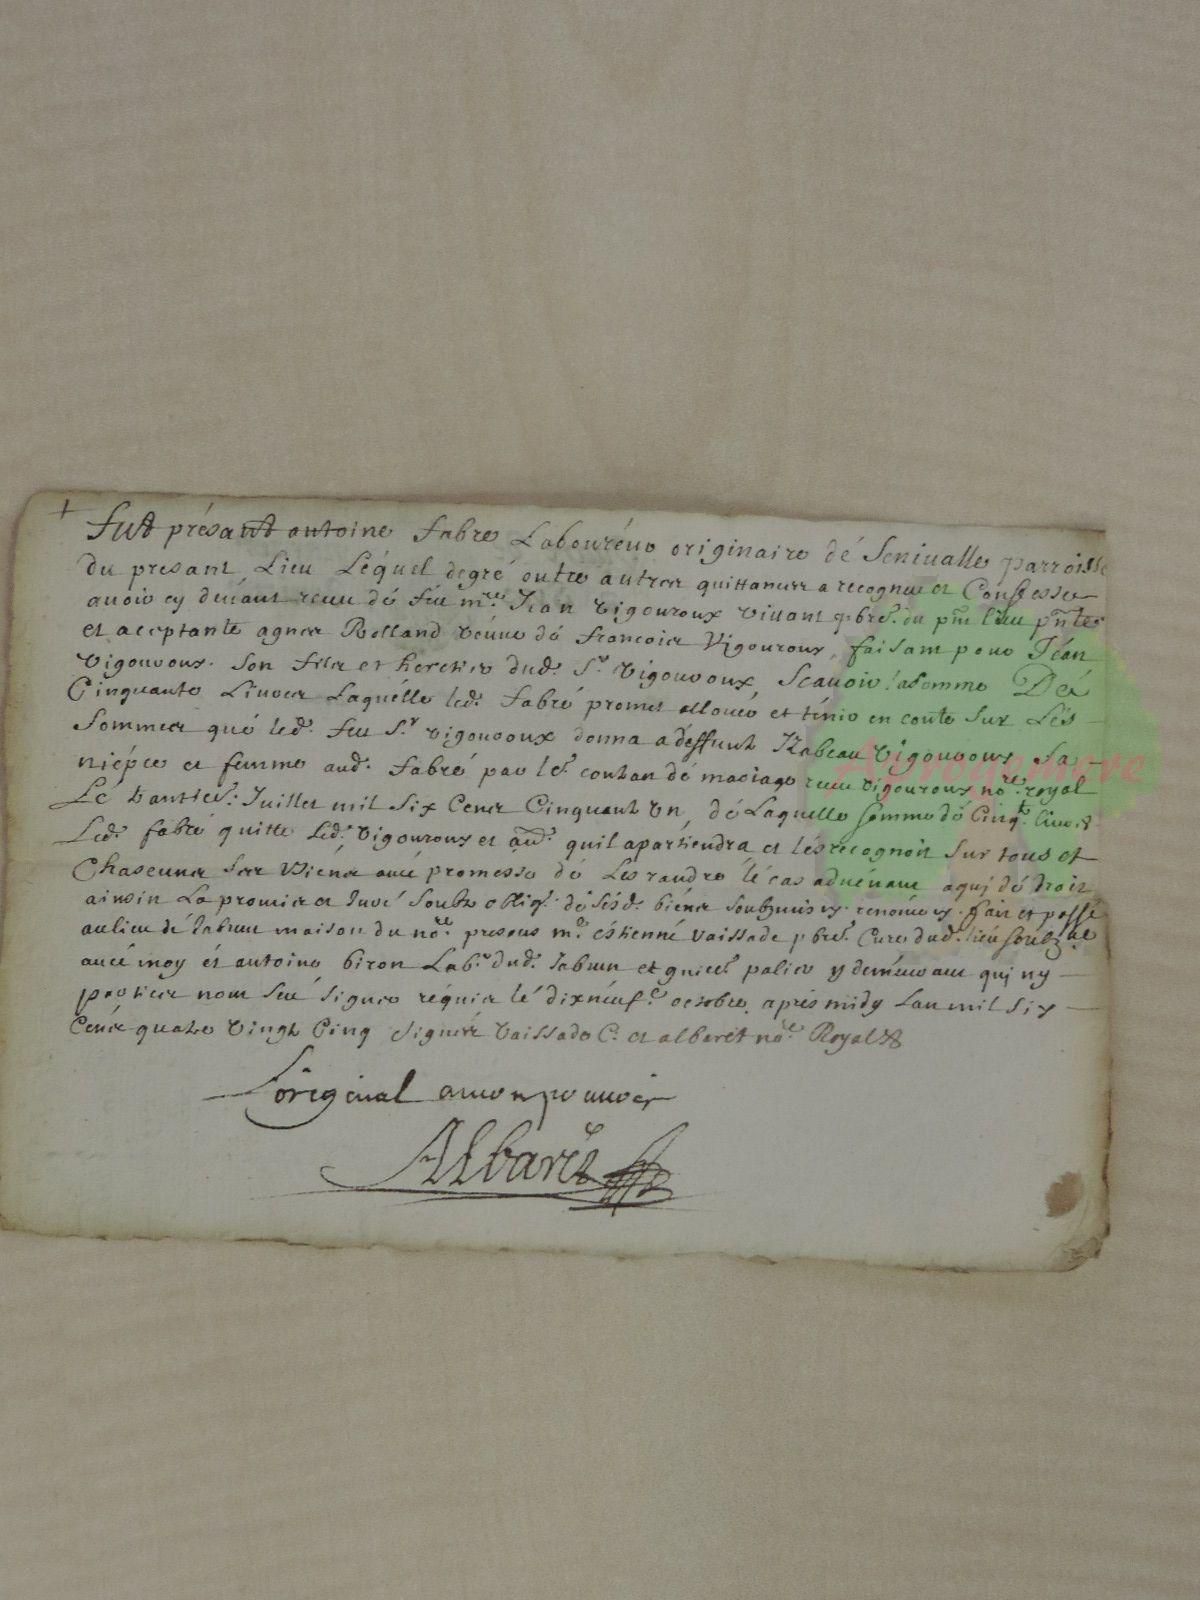 Fut présant antoine fabre Laboureur originaire dé Seniualle parroisse
du presant Lieu Léquel dégré outre autres quittances a recogneu et Confessé
auoir cy deuant receu dé feu mre. Jean vigouroux viuant pbre. du pnt lieu pnte
et acceptante agnes Rolland veuue dé francois Vigouroux, faisant pour Jéan
vigouroux. son fils et heretier dud. Sr. vigouroux, Scauoir la somme Dé
Cinquante Liures Laquélle led. fabré promet alloué et ténir en conte sur Lés
sommes qué led. feu Sr. vigouroux donna a deffunte Izabeau vigouroux sa
niépce et femme aud. fabré par le contrat dé mariage receu vigouroux nore. royal
Lé Juillet mil six Cens Cinquant Un, dé Laquelle somme dé Cinqte. liures
Led. fabré quitte Led. vigouroux et au. quil apartiendra et lés recognoit sur tous et
Chascuns ses biens aué promesse dé Les randre lé cas aduénant a quj dé droit
ainsin La promis et Juré soubz oblign. dé sésd. biens soubzmis renoncés. fait et passé
au lieu dé maison du nore. presens mre. éstienné vaissade pbre. Curé dud. lieu soubzné
aué moy ét antoine biron Labr. dud. et palier y demeurant quj ny
parties nont sçeu signer réquis lé dixneufe. octobre aprés midy Lan mil six
Céns quatre vingt Cinq signés vaissade C. et albaret nore. Royal
Loriginal a mon pouuoir
Albaret
Auprogemere